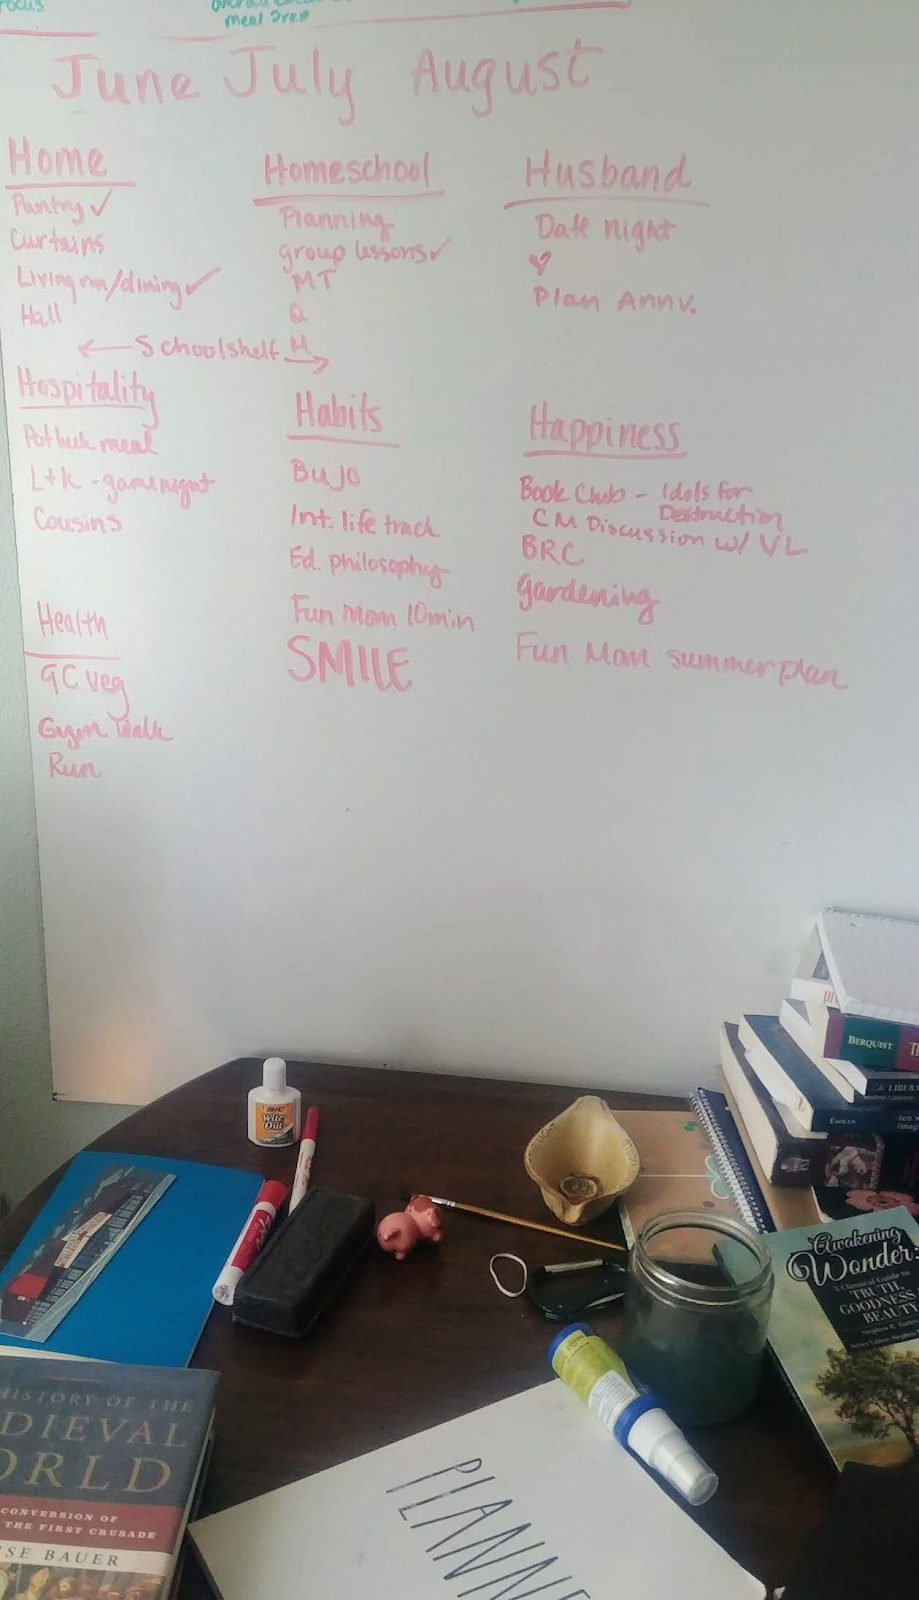 meal prep
June July August
Home
Pantry ✓
Curtains
Living rm/dining ✓
Hall
← Schoolshelf →
Homeschool
Planning
group lessons ✓
MT
Q
M
Husband
Date night
♥
Plan Annv.
Hospitality
Potluck meal
L+K - game night
Cousins
Habits
BuJo
Int. life track
Ed. philosophy
Fun Mom 10min
SMILE
Happiness
Book Club - Idols for
Destruction
CM Discussion w/ VL
BRC
gardening
Fun Mom summer plan
Health
GC veg
Gym Walk
Run
BERQUIST
ESOLEN
BIC
Wite
Out
Awakening
Wonder:
A Classical Guide to
TRUTH,
GOODNESS
BEAUTY
HISTORY OF THE
DIEVAL
ORLD
CONVERSION OF
THE FIRST CRUSADE
SE BAUER
PLANNE